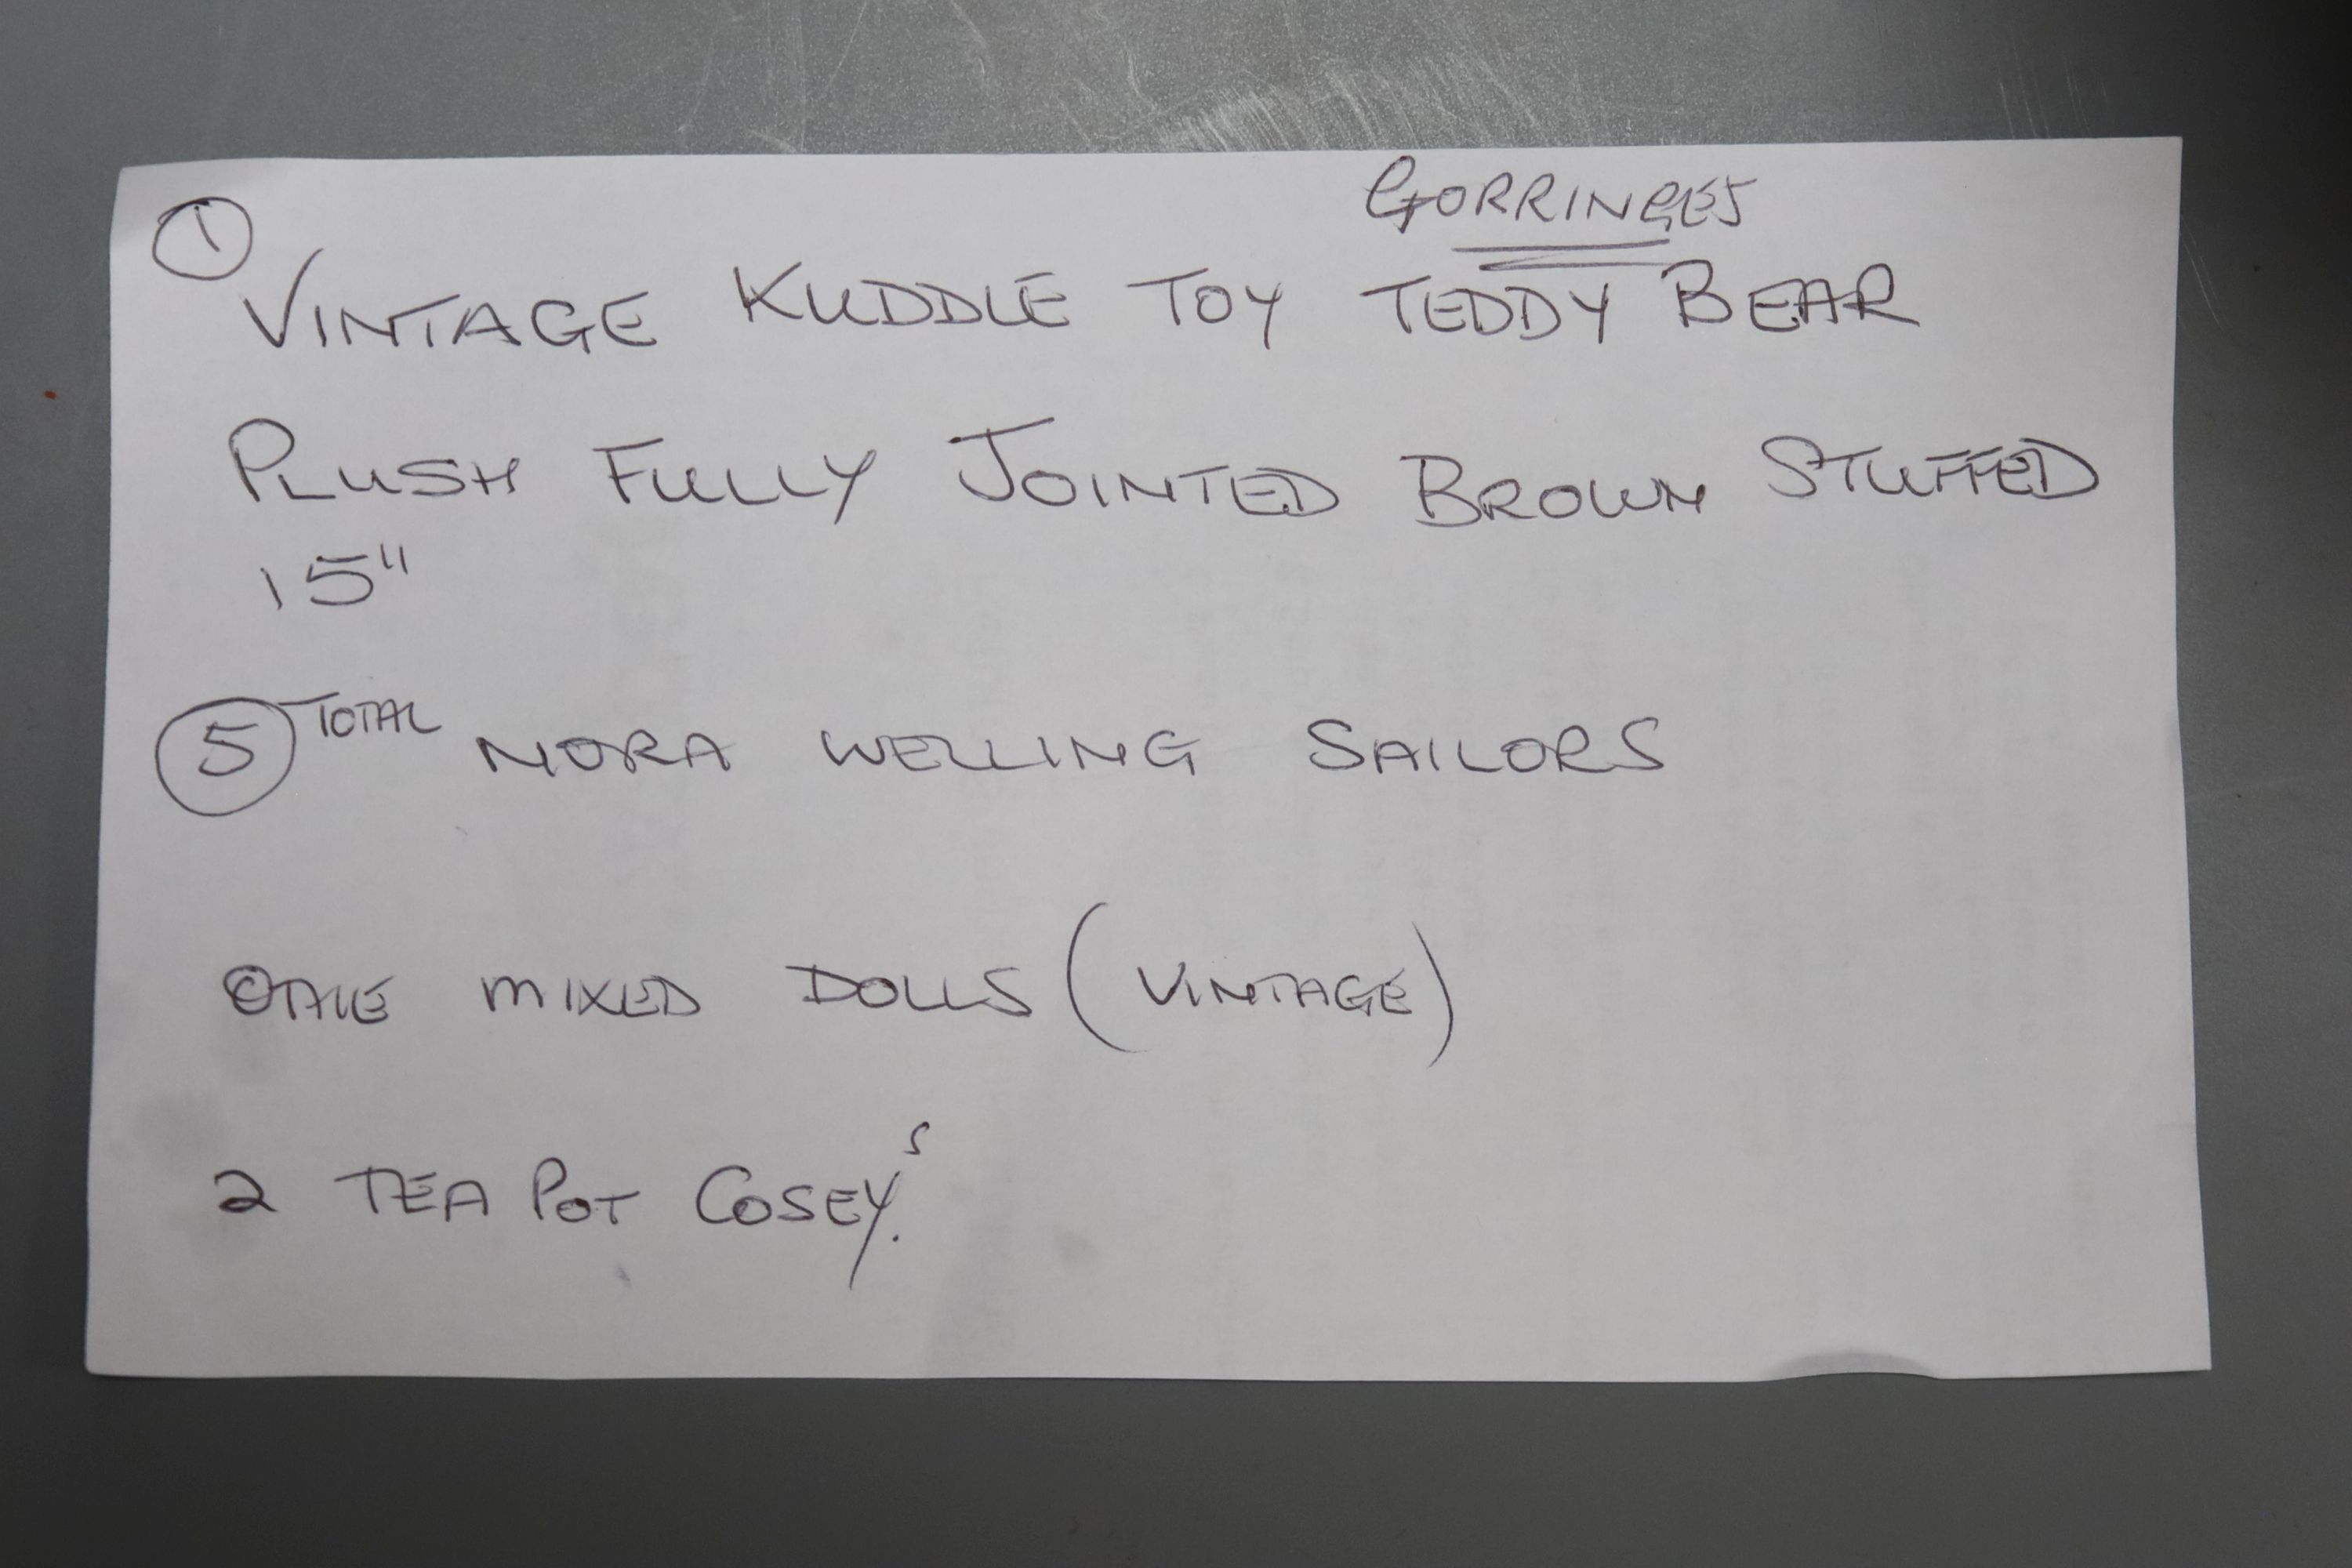 GORRINGES
① VINTAGE KUDDLE TOY TEDDY BEAR
PLUSH FULLY JOINTED BROWN STUFFED
15"
⑤ TOTAL NORA WELLING SAILORS
MIXED DOLLS (VINTAGE)
2 TEA POT COSEY'S